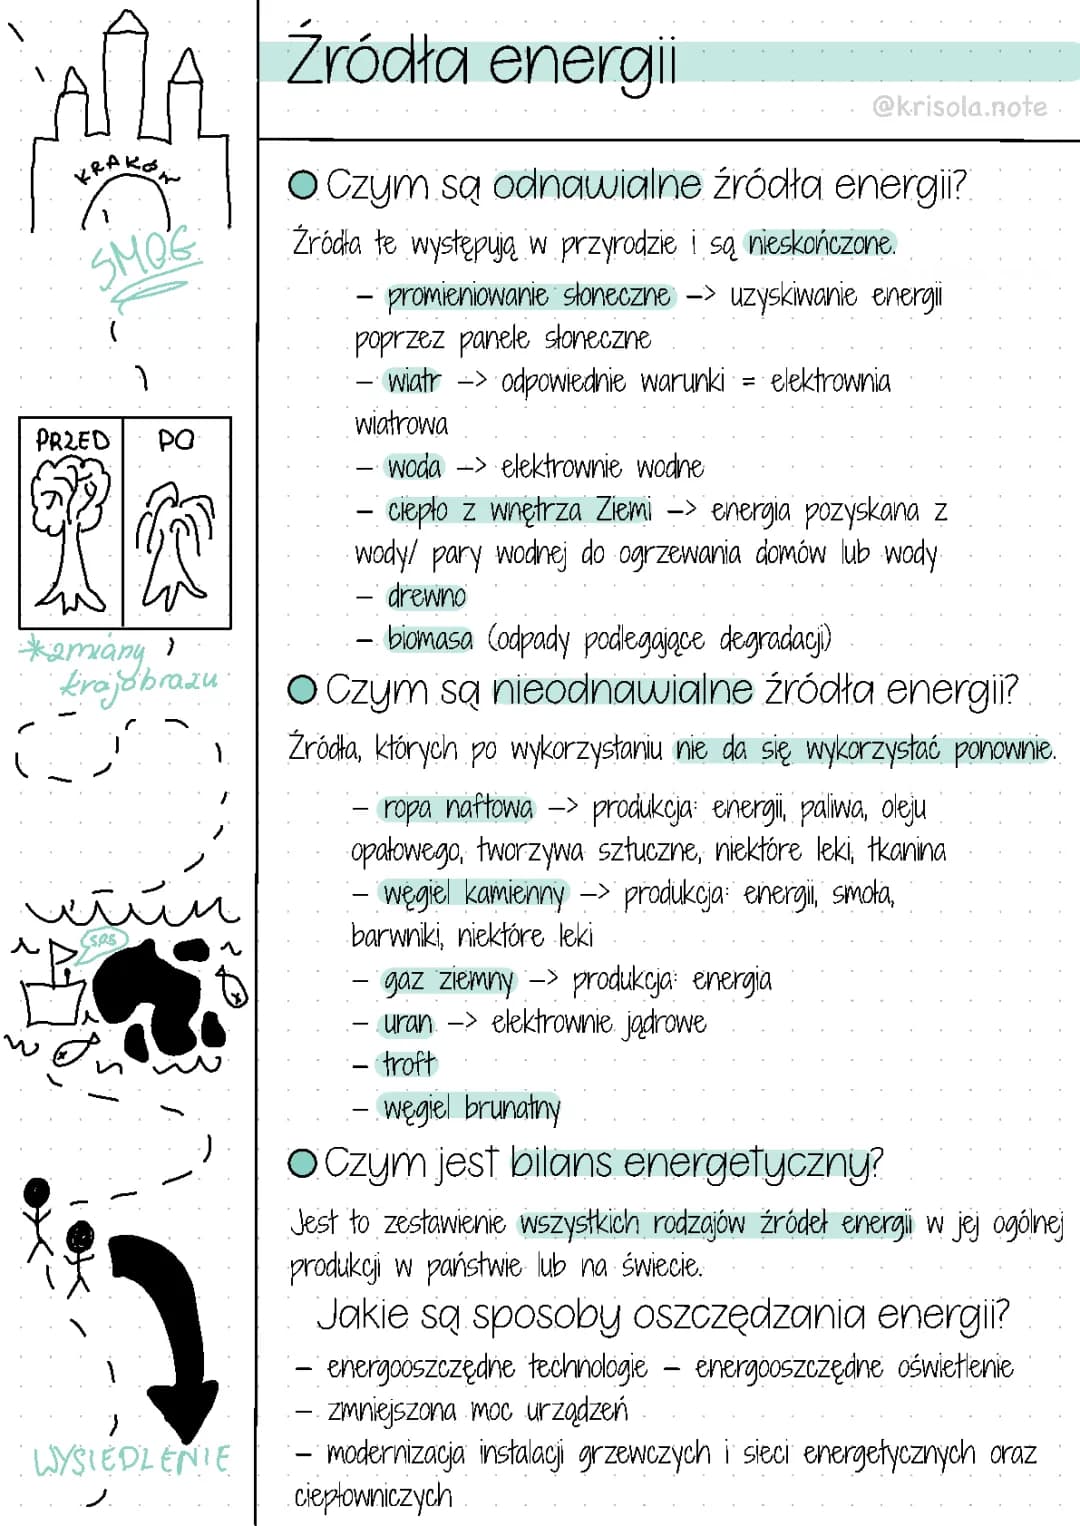 Źródła energii
@krisola.note
KRAKÓW
SMOG
Czym są odnawialne źródła energii?
Źródła te występują w przyrodzie i są nieskończone.
- promieniowanie słoneczne -> uzyskiwanie energii
poprzez panele słoneczne
- wiatr -> odpowiednie warunki = elektrownia
wiatrowa
- woda -> elektrownie wodne
- ciepło z wnętrza Ziemi -> energia pozyskana z
wody/ pary wodnej do ogrzewania domów lub wody
- drewno
- biomasa (odpady podlegające degradacji)
PRZED PO
*zmiany
krajobrazu
Czym są nieodnawialne źródła energii?
Źródła, których po wykorzystaniu nie da się wykorzystać ponownie.
- ropa naftowa -> produkcja: energii, paliwa, oleju
opałowego, tworzywa sztuczne, niektóre leki, tkanina
- węgiel kamienny -> produkcja: energii, smoła,
barwniki, niektóre leki
- gaz ziemny -> produkcja: energia
- uran -> elektrownie jądrowe
- troft
- węgiel brunatny
SOS
Czym jest bilans energetyczny?
Jest to zestawienie wszystkich rodzajów źródeł energii w jej ogólnej
produkcji w państwie lub na świecie.
Jakie są sposoby oszczędzania energii?
- energooszczędne technologie - energooszczędne oświetlenie
- zmniejszona moc urządzeń
- modernizacja instalacji grzewczych i sieci energetycznych oraz
ciepłowniczych
WYSIEDLENIE